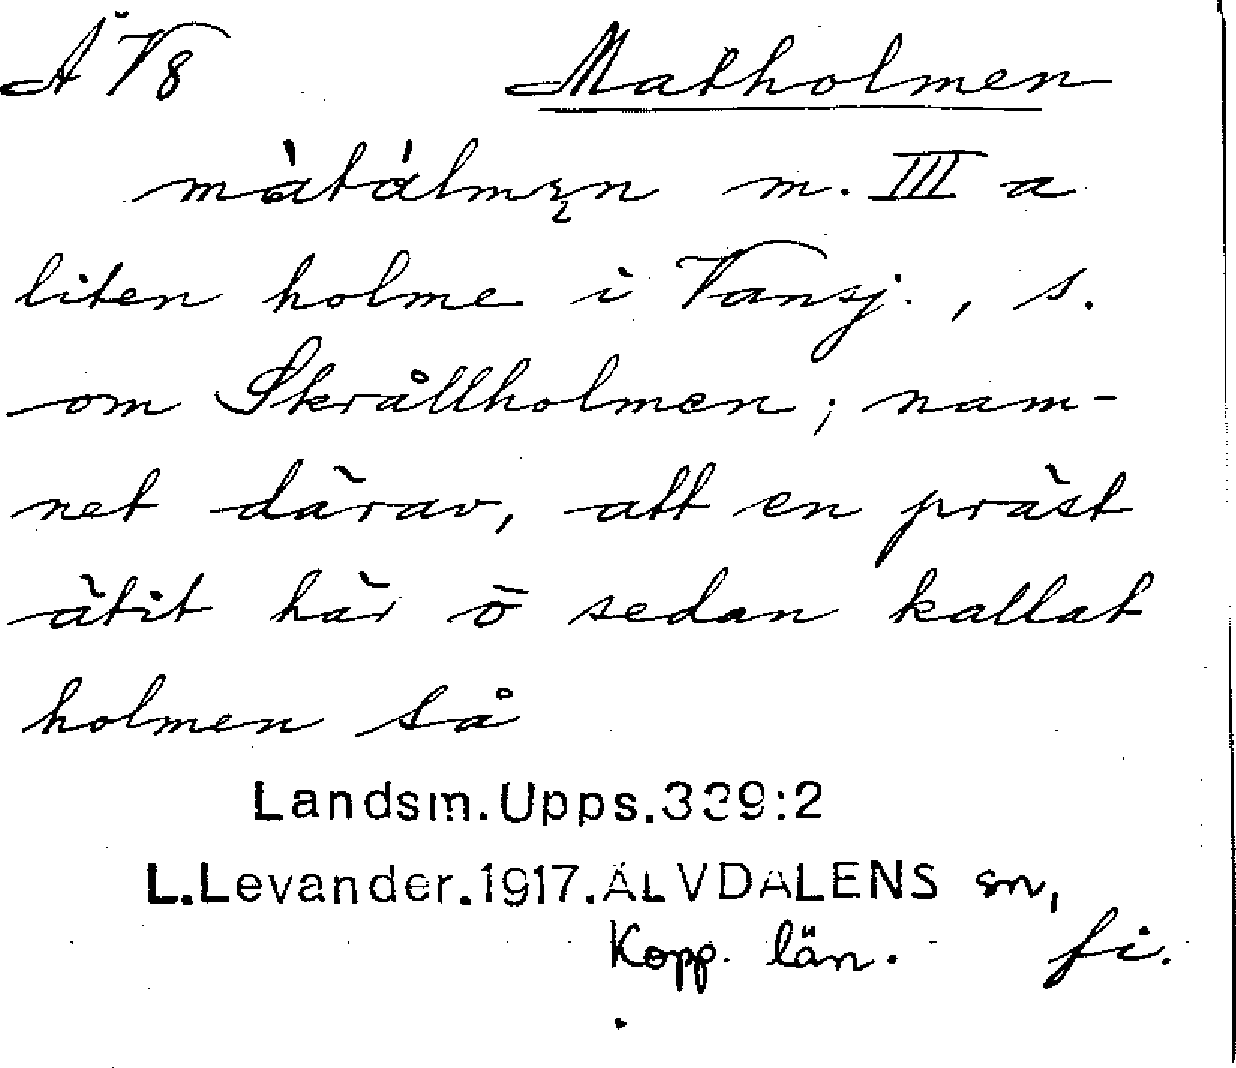 Ä V8 Matholmen
màtàlmęn m. III a
liten holme i Vansj., s.
om Skrållholmen; nam-
net därav, att en präst
ätit här o sedan kallat
holmen så
Landsm.Upps.339:2
L.Levander.1917.ÄLVDALENS sn,
Kopp. län. fi.